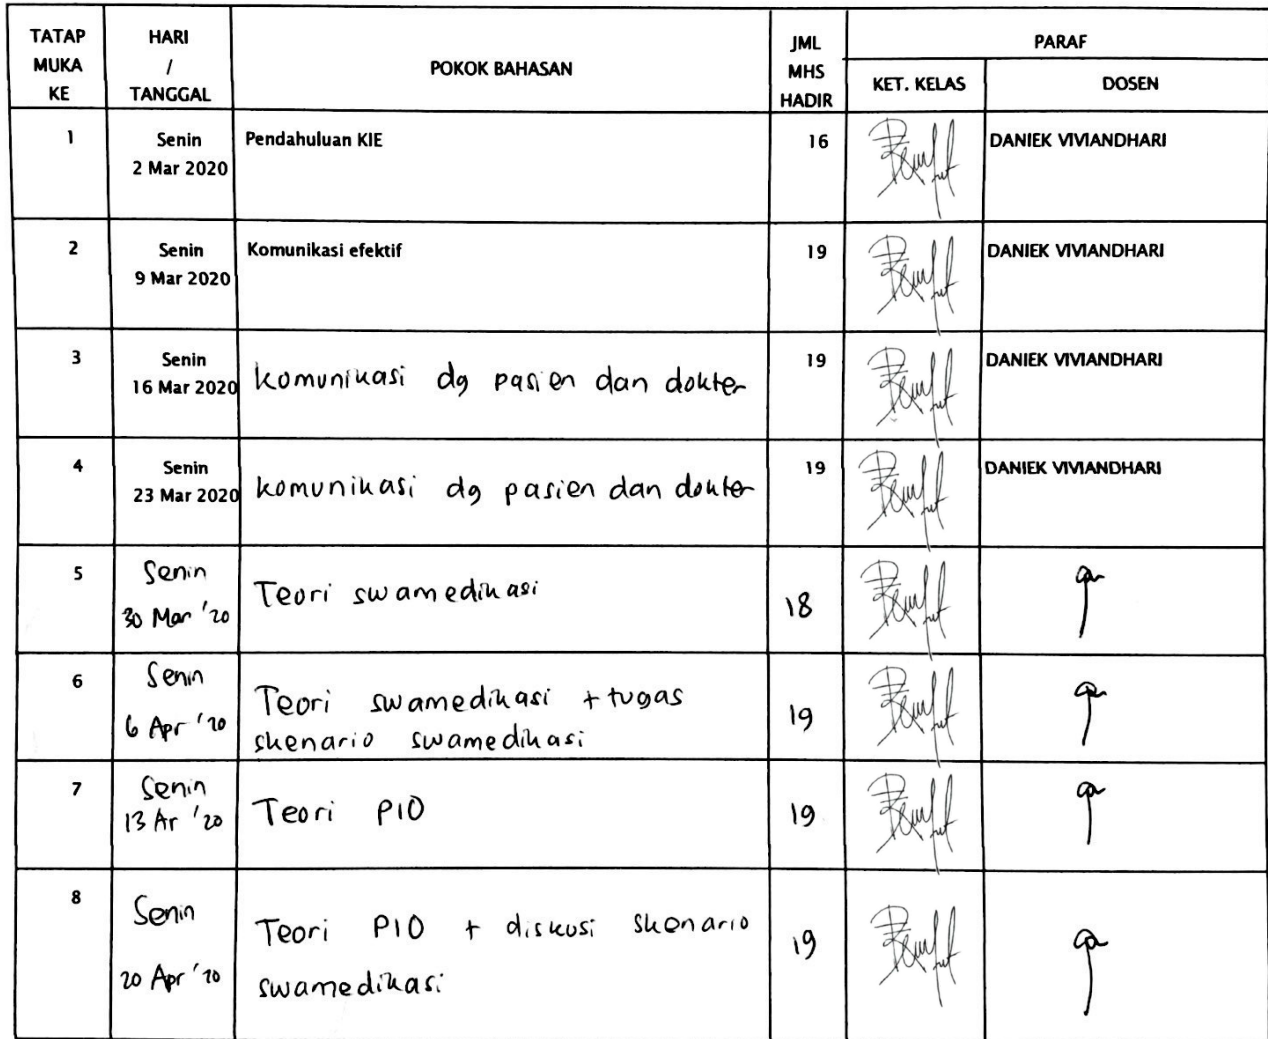 TATAP
MUKA
KE
HARI
/
TANGGAL
POKOK BAHASAN
JML
MHS
HADIR
PARAF
KET. KELAS
DOSEN
1
Senin
2 Mar 2020
Pendahuluan KIE
16
DANIEK VIVIANDHARI
2
Senin
9 Mar 2020
Komunikasi efektif
19
DANIEK VIVIANDHARI
3
Senin
16 Mar 2020
komunikasi dg pasien dan dokter
19
DANIEK VIVIANDHARI
4
Senin
23 Mar 2020
komunikasi dg pasien dan dokter
19
DANIEK VIVIANDHARI
5
Senin
30 Mar '20
Teori swamedikasi
18
6
Senin
6 Apr '20
Teori swamedikasi + tugas
skenario swamedikasi
19
7
Senin
13 Ar '20
Teori PIO
19
8
Senin
20 Apr '20
Teori PIO + diskusi skenario
swamedikasi
19